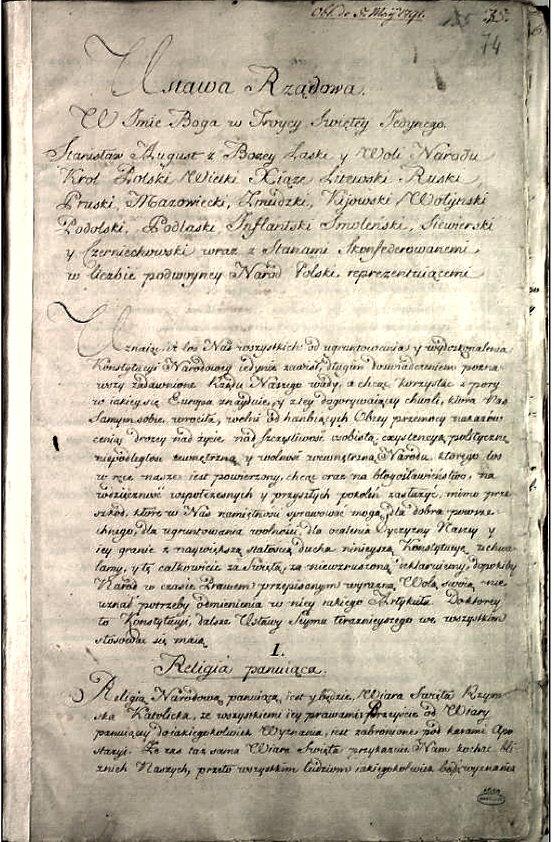 Obl. de 5. Maij 1791. 155 35.
74
Ustawa Rządowa.
W Imie Boga w Troycy Swiętey Jedynego.
Stanisław August z Bożey Łaski y Woli Narodu
Krol Polski Wielki Xiąże Litewski Ruski
Pruski, Mazowiecki, Zmudzki, Kijowski Wołyński
Podolski, Podlaski Inflantski Smoleński, Siewierski
y Czerniechowski wraz z Stanami Skonfederowanemi
w liczbie podwoyney Naród Polski reprezentuiącemi
Uznaiąc, iż los Nas wszystkich od ugruntowania y wydoskonalenia
Konstytucyi Narodowey iedynie zawisł, długim doswiadczeniem pozna-
wszy zadawnione Rządu Naszego wady, a chcąc korzystać z pory
w iakiey się Europa znayduie, y z tey dogorywaiącey chwili, która Nas
samym sobie wróciła, wolni od hańbiących Obcey przemocy nakazów
ceniąc drożey nad życie, nad szczęśliwość osobistą, exystencyą polityczną
niepodległość zewnętrzną y wolność wewnętrzną Narodu, którego los
w ręce nasze iest powierzony, chcąc oraz na błogosławieństwo, na
wdzięczność współczesnych y przyszłych pokoleń zasłużyć, mimo prze-
szkód, które w Nas namiętności sprawować mogą, dla dobra powsze-
chnego, dla ugruntowania wolności, dla ocalenia Oyczyzny Naszey y
iey granic z naywiększą stałością ducha ninieyszą Konstytucyę uchwa-
lamy, y tę całkowicie za Swiętą, za niewzruszoną deklaruiemy, dopókiby
Naród w czasie Prawem przepisanym wyrazną Wolą swoią nie
uznał potrzeby odmienienia w niey iakiego Artykułu. Do ktorey
to Konstytucyi, dalsze Ustawy Seymu teraznieyszego we wszystkim
stosować się maią.
I.
Religia panuiąca.
Religią Narodową panuiącą iest y będzie Wiara Swięta Rzym-
ska Katolicka, ze wszystkiemi iey prawami. Przeyście od Wiary
panuiącey do iakiegokolwiek Wyznania, iest zabronione pod karami Apo-
stazyi. Ze zaś taż sama Wiara Swięta przykazuie Nam kochać bli-
znich Naszych, przeto wszystkim ludziom iakiegokolwiek bądź wyznania